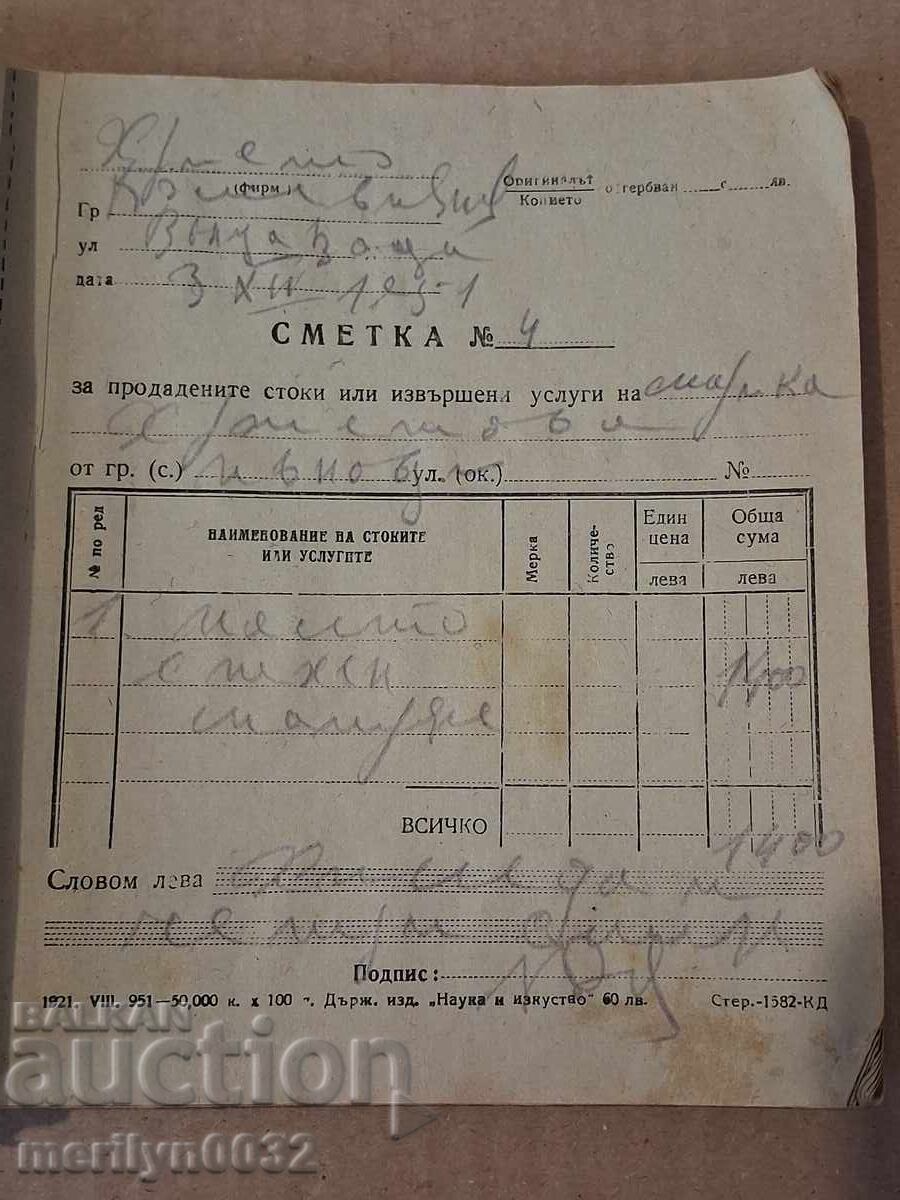 Христо
(фирма)
Оригиналът
Копието
обгербван с лв.
Гр
ул
дата 3 XII 1951
СМЕТКА № 4
за продадените стоки или извършени услуги на Марийка
Христова
от гр. (с.) ул. (ок.) №
№ по ред
НАИМЕНОВАНИЕ НА СТОКИТЕ ИЛИ УСЛУГИТЕ
Мерка
Количество
Един цена
лева
Обща сума
лева
1. палто
1400
ВСИЧКО 1400
Словом лева Хиляда и
четири стотин
Подпис:
1921. VIII. 951—50,000 к. х 100 л. Държ. изд. „Наука и изкуство" 60 лв. Стер.-1582-КД
BALKAN
auction
merilyn0032